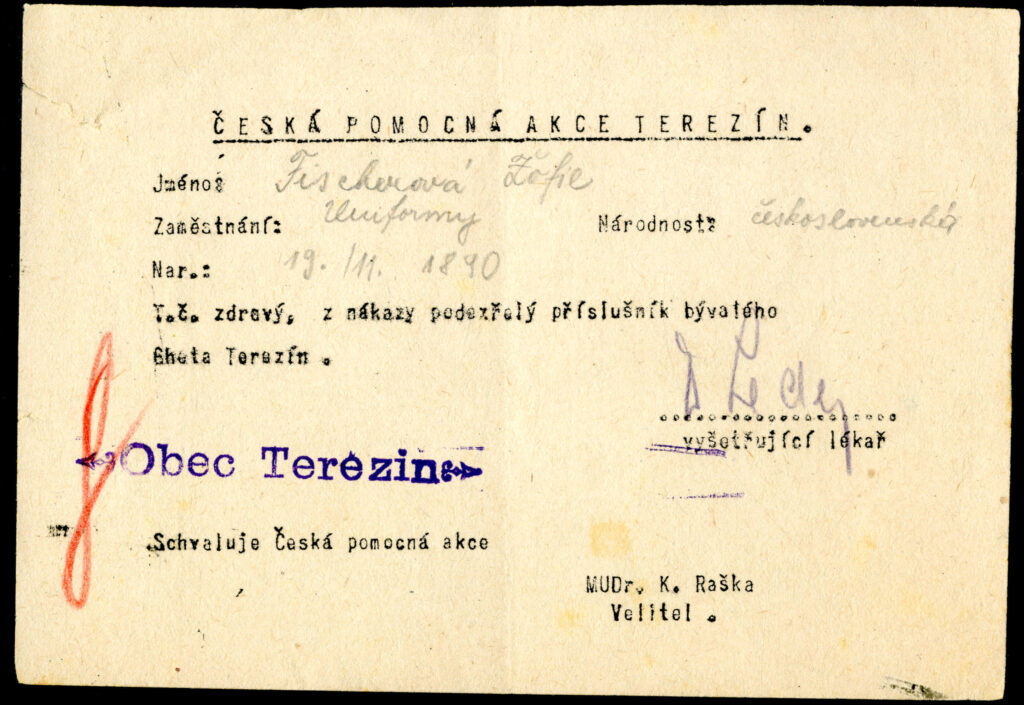 ČESKÁ POMOCNÁ AKCE TEREZÍN.
Jméno: Fischerová Žofie
Zaměstnání: Uniformy Národnost: československá
Nar.: 19./11. 1890
T.č. zdravý, z nákazy podezřelý příslušník bývalého
Gheta Terezín .
vyšetřující lékař
Obec Terezín
Schvaluje Česká pomocná akce
MUDr. K. Raška
Velitel .